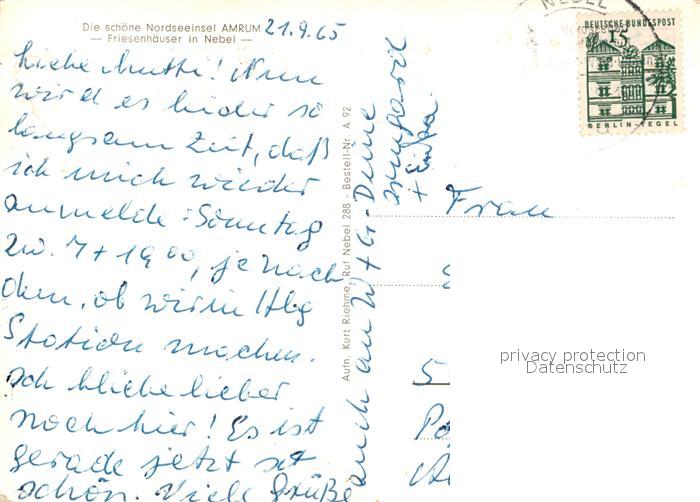 Die schöne Nordseeinsel AMRUM
— Friesenhäuser in Nebel —
21.9.65
Liebe Mutti! Nun
wird es leider so
langsam Zeit, daß
ich mich wieder
anmelde: Sonntag
zw. 7 + 19 00, je nach
dem, ob wir in Hbg
Station machen.
Ich bliebe lieber
noch hier! Es ist
gerade jetzt so
schön. Viele Grüße
auch an W + G. Deine
Irmgard
+ Einka.
Aufn. Kurt Riehme, Ruf Nebel 288 - Bestell-Nr. A 92
NEBEL
DEUTSCHE BUNDESPOST
15
BERLIN-TEGEL
Frau
5
privacy protection
Datenschutz